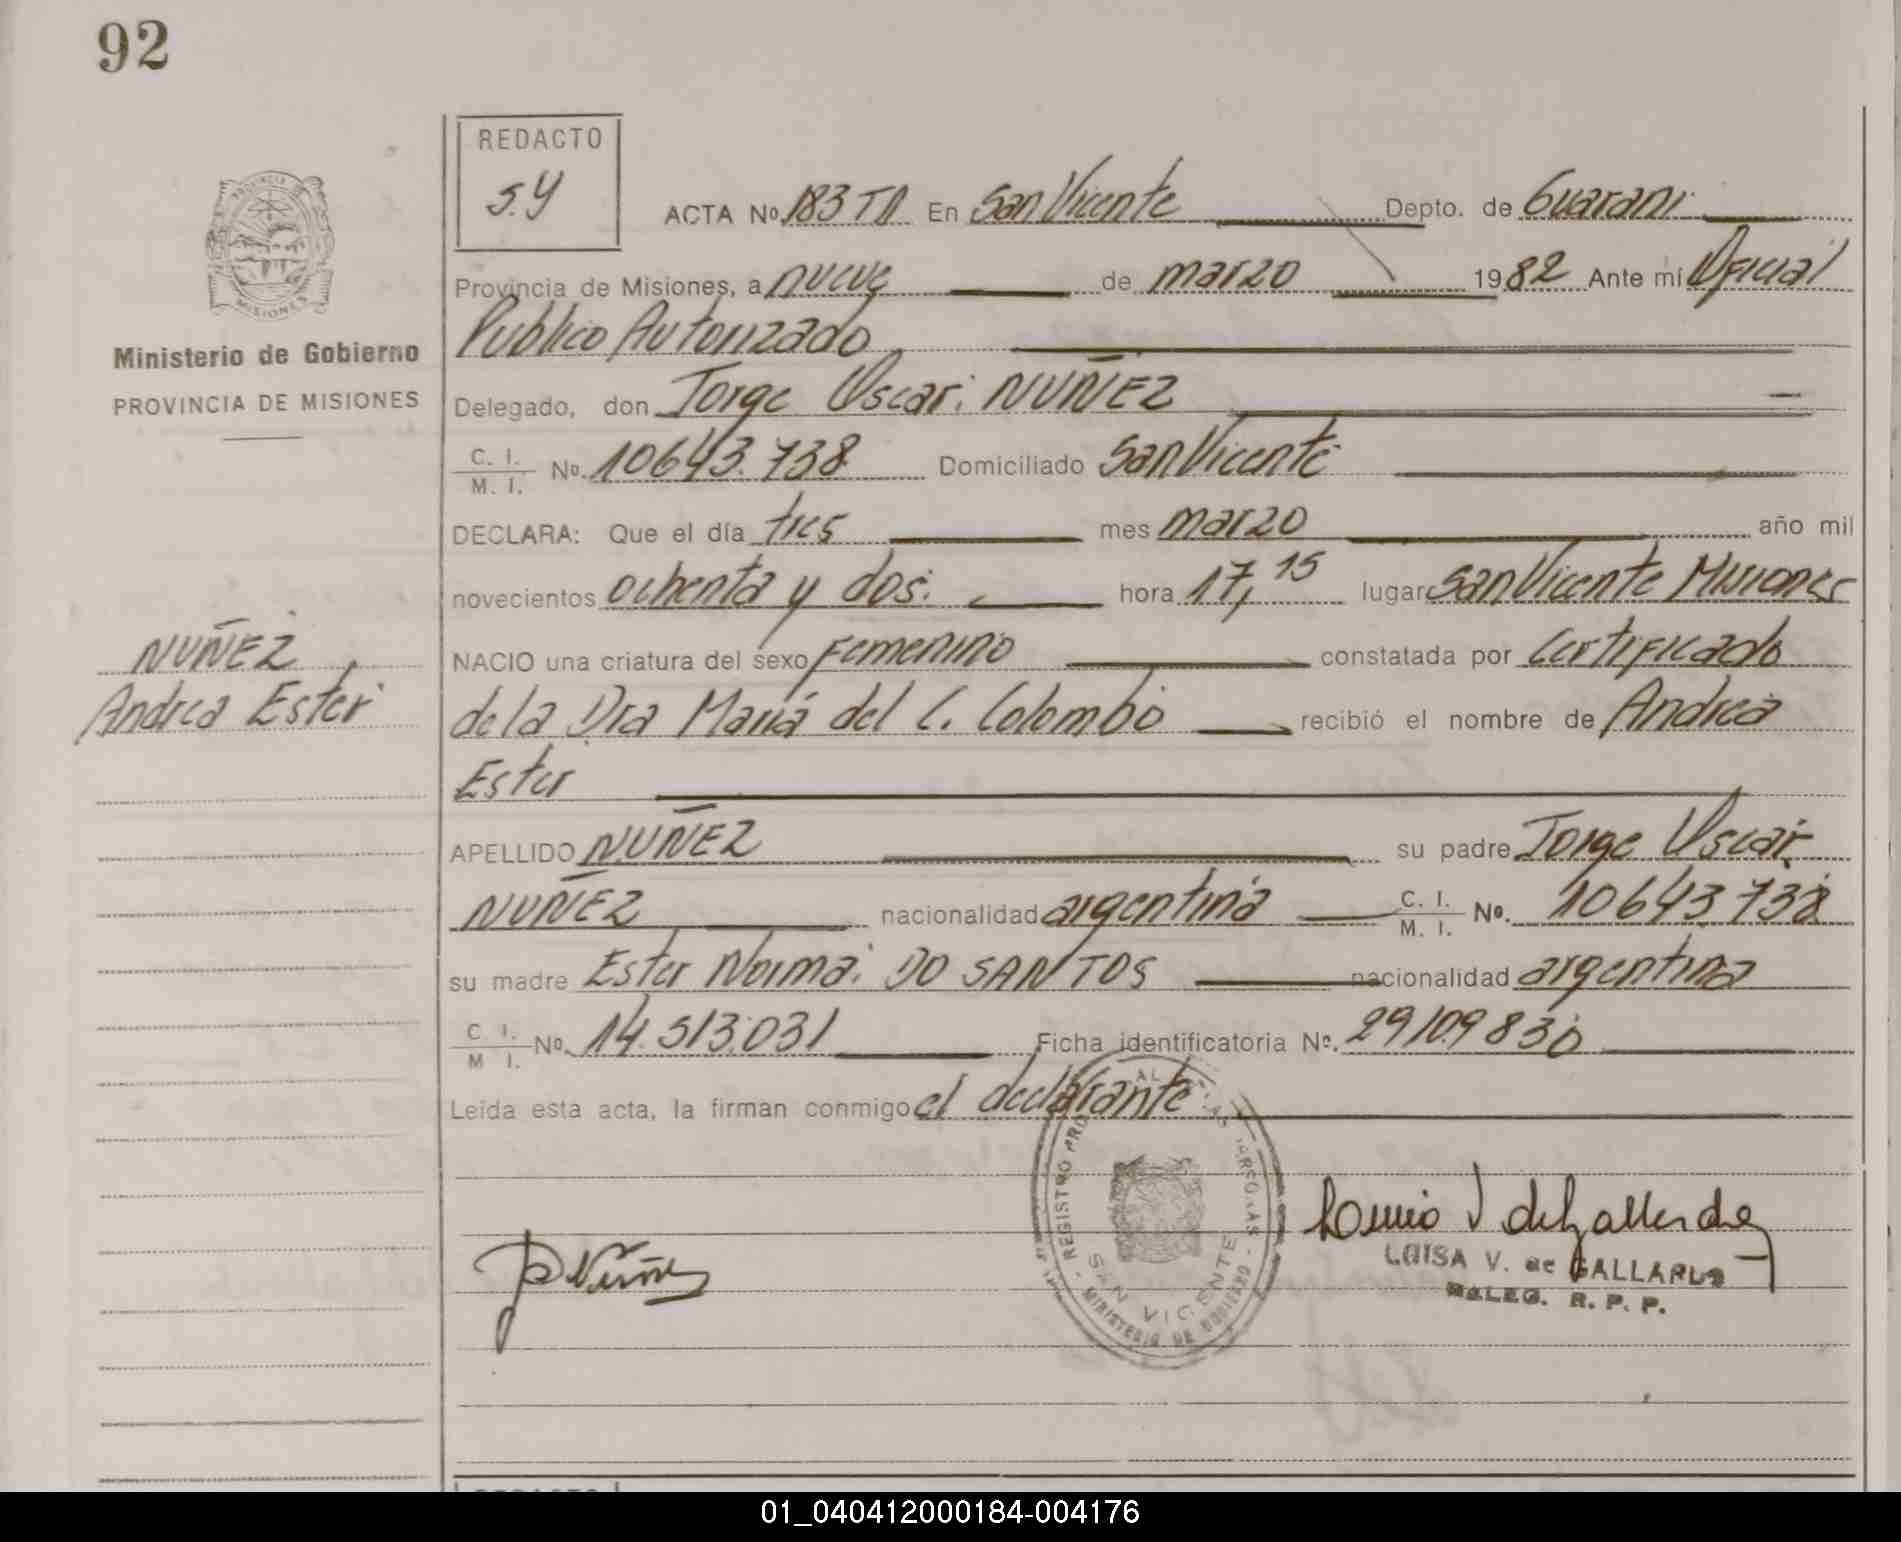 92
REDACTO
S.Y
PROVINCIA DE
MISIONES
Ministerio de Gobierno
PROVINCIA DE MISIONES
ACTA Nº 183 TA En San Vicente Depto. de Guarani
Provincia de Misiones, a nueve de marzo 1982 Ante mí Oficial
Publico Autorizado
Delegado, don Jorge Oscar NUÑEZ
C. I. / M. I. Nº. 10643.738 Domiciliado San Vicente
DECLARA: Que el día tres mes marzo año mil
novecientos ochenta y dos. hora 17,15 lugar San Vicente Misiones
NUÑEZ,
Andrea Ester
NACIO una criatura del sexo Femenino constatada por Certificado
de la Dra María del C. Colombo recibió el nombre de Andrea
Ester
APELLIDO NUÑEZ su padre Jorge Oscar
NUÑEZ nacionalidad argentina C. I. / M. I. Nº. 10643738
su madre Ester Norma DO SANTOS nacionalidad argentina
C. I. / M I. Nº. 14.513.031 Ficha identificatoria Nº. 29109830
Leída esta acta, la firman conmigo el declarante
REGISTRO PRO AL LAS PERSONAS
SAN VICENTE
MINISTERIO DE GOBIERNO
Nuñez
LUISA V. de GALLARDO
DELEG. R. P. P.
01_040412000184-004176